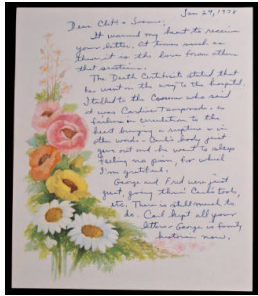 Jan 29, 1998
Dear Cliff &
It warmed my heart to receive
your letter. At times such as
these it is the love from others
that sustains.
The Death Certificate stated that
he went on the way to the hospital.
I talked to the Coroner who said
it was Cardiac Tamponade, a
failure in circulation to the
heart bringing a rupture or in
other words - Carl's body just
gave out and he went to sleep
feeling no pain, for which
I'm grateful.
George and Fred were just
great, going thru Carl's tools,
etc. There is still much to
do. Carl kept all your
letters & George is family
historian now.